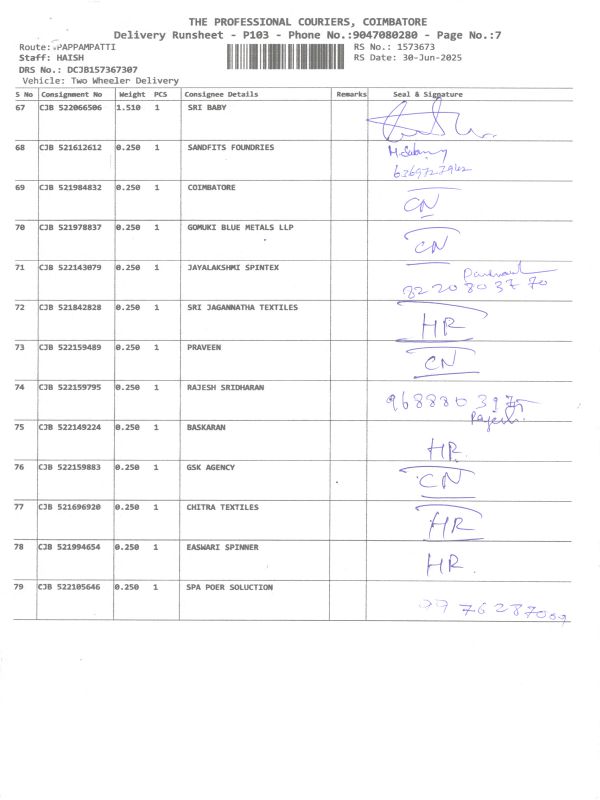 THE PROFESSIONAL COURIERS, COIMBATORE
Delivery Runsheet - P103 - Phone No.:9047080280 - Page No.:7
Route: PAPPAMPATTI
RS No.: 1573673
Staff: HAISH
RS Date: 30-Jun-2025
DRS No.: DCJB157367307
Vehicle: Two Wheeler Delivery
S No Consignment No Weight PCS Consignee Details Remarks Seal & Signature
67 CJB 522066506 1.510 1 SRI BABY
68 CJB 521612612 0.250 1 SANDFITS FOUNDRIES
6369727942
69 CJB 521984832 0.250 1 COIMBATORE CN
70 CJB 521978837 0.250 1 GOMUKI BLUE METALS LLP CN
71 CJB 522143079 0.250 1 JAYALAKSHMI SPINTEX
82 20 80 37 70
72 CJB 521842828 0.250 1 SRI JAGANNATHA TEXTILES HR
73 CJB 522159489 0.250 1 PRAVEEN CN
74 CJB 522159795 0.250 1 RAJESH SRIDHARAN
Rajesh
75 CJB 522149224 0.250 1 BASKARAN HR.
76 CJB 522159883 0.250 1 GSK AGENCY CN
77 CJB 521696920 0.250 1 CHITRA TEXTILES HR
78 CJB 521994654 0.250 1 EASWARI SPINNER HR.
79 CJB 522105646 0.250 1 SPA POER SOLUCTION